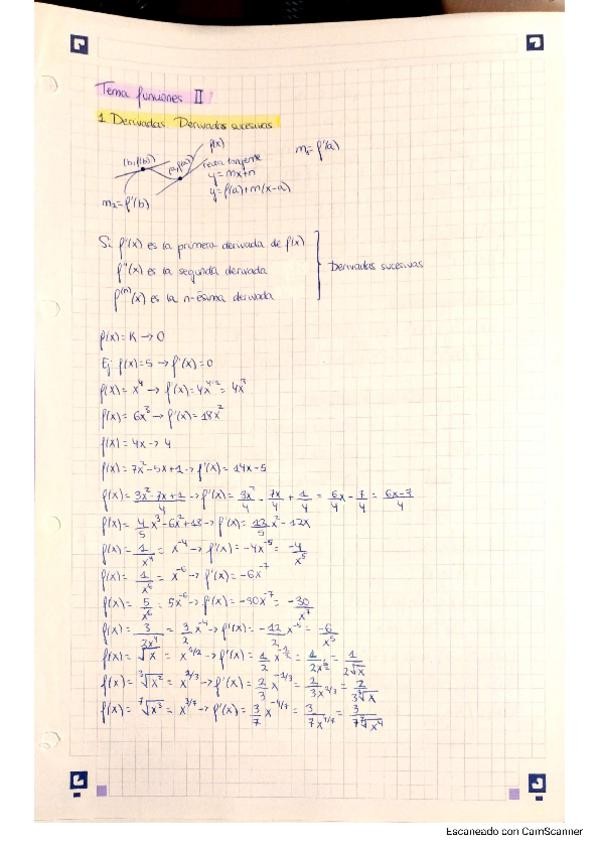 Tema funciones II
1. Derivadas. Derivadas sucesivas
f(x)
(b,f(b))
(a,f(a))
recta tangente
y = mx+n
y = f(a)+m(x-a)
m₂ = f'(b)
m₁ = f'(a)
Si f'(x) es la primera derivada de f(x)
f''(x) es la segunda derivada
f⁽ⁿ⁾(x) es la n-ésima derivada
Derivadas sucesivas
f(x) = K → 0
Ej: f(x) = 5 → f'(x) = 0
f(x) = x⁴ → f'(x) = 4x⁴⁻¹ = 4x³
f(x) = 6x³ → f'(x) = 18x²
f(x) = 4x → 4
f(x) = 7x²-5x+1 → f'(x) = 14x-5
f(x) = (3x²-7x+1)/4 → f'(x) = 3x²/4 - 7x/4 + 1/4 = 6x/4 - 7/4 = (6x-7)/4
f(x) = 4/5 x³-6x²+18 → f'(x) = 12/5 x²-12x
f(x) = 1/x⁴ = x⁻⁴ → f'(x) = -4x⁻⁵ = -4/x⁵
f(x) = 1/x⁶ = x⁻⁶ → f'(x) = -6x⁻⁷
f(x) = 5/x⁶ = 5x⁻⁶ → f'(x) = -30x⁻⁷ = -30/x⁷
f(x) = 3/2x⁴ = 3/2 x⁻⁴ → f'(x) = -12/2 x⁻⁵ = -6/x⁵
f(x) = √x = x^1/2 → f'(x) = 1/2 x^-1/2 = 1/2x^½ = 1/2√x
f(x) = ³√x² = x^2/3 → f'(x) = 2/3 x^-1/3 = 2/3x^1/3 = 2/3³√x
f(x) = ⁷√x³ = x^3/7 → f'(x) = 3/7 x^-4/7 = 3/7x^4/7 = 3/7⁷√x⁴
Escaneado con CamScanner